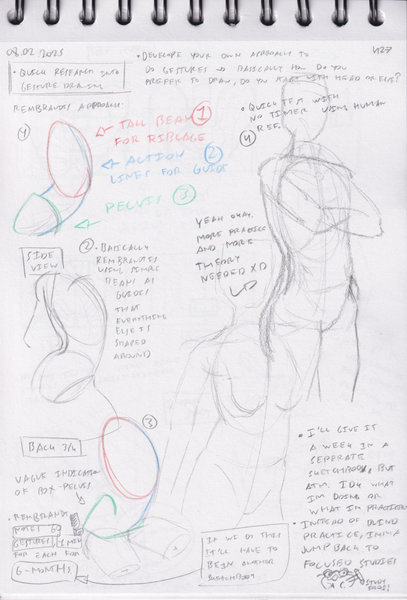 08.02 2025
• QUICK RESEARCH INTO
GESTURE DRAWING
• DEVELOPE YOUR OWN APPROACH TO
DO GESTURES → BASICALLY HOW DO YOU
PREFER TO DRAW, DO YOU START WITH HEAD OR ELSE?
427
REMBRANDTS APPROACH:
1
TALL BEAN 1
FOR RIBCAGE
ACTION 2
LINES FOR GUIDE
PELVIS 3
• QUICK TEST WITH
NO TIMER USING HUMAN
REF.
4
SIDE
VIEW
2 • BASICALLY
REMBRANDTS
USING
BEANS AS
GUIDES
THAT
EVERYTHING
ELSE IS
SHAPED
AROUND
YEAH OKAY,
MORE PRACTICE
AND MORE
THEORY
NEEDED XD
3
BACK 3/4
VAGUE INDICATION
OF BOX-PELVIS
• REMBRANDT
60
GESTURES 1 MIN
FOR EACH FOR
6-MONTHS
IF WE DO THIS
IT'LL HAVE TO
BE IN ANOTHER
SKETCHBOOK
• I'LL GIVE IT
A WEEK IN A
SEPERATE
SKETCHBOOK, BUT
ATM. IDK WHAT
I'M DOING OR
WHAT I'M PRACTICING
• INSTEAD OF DOING
PRACTICE, IMMA
JUMP BACK TO
FOCUSED STUDIES
STUDY